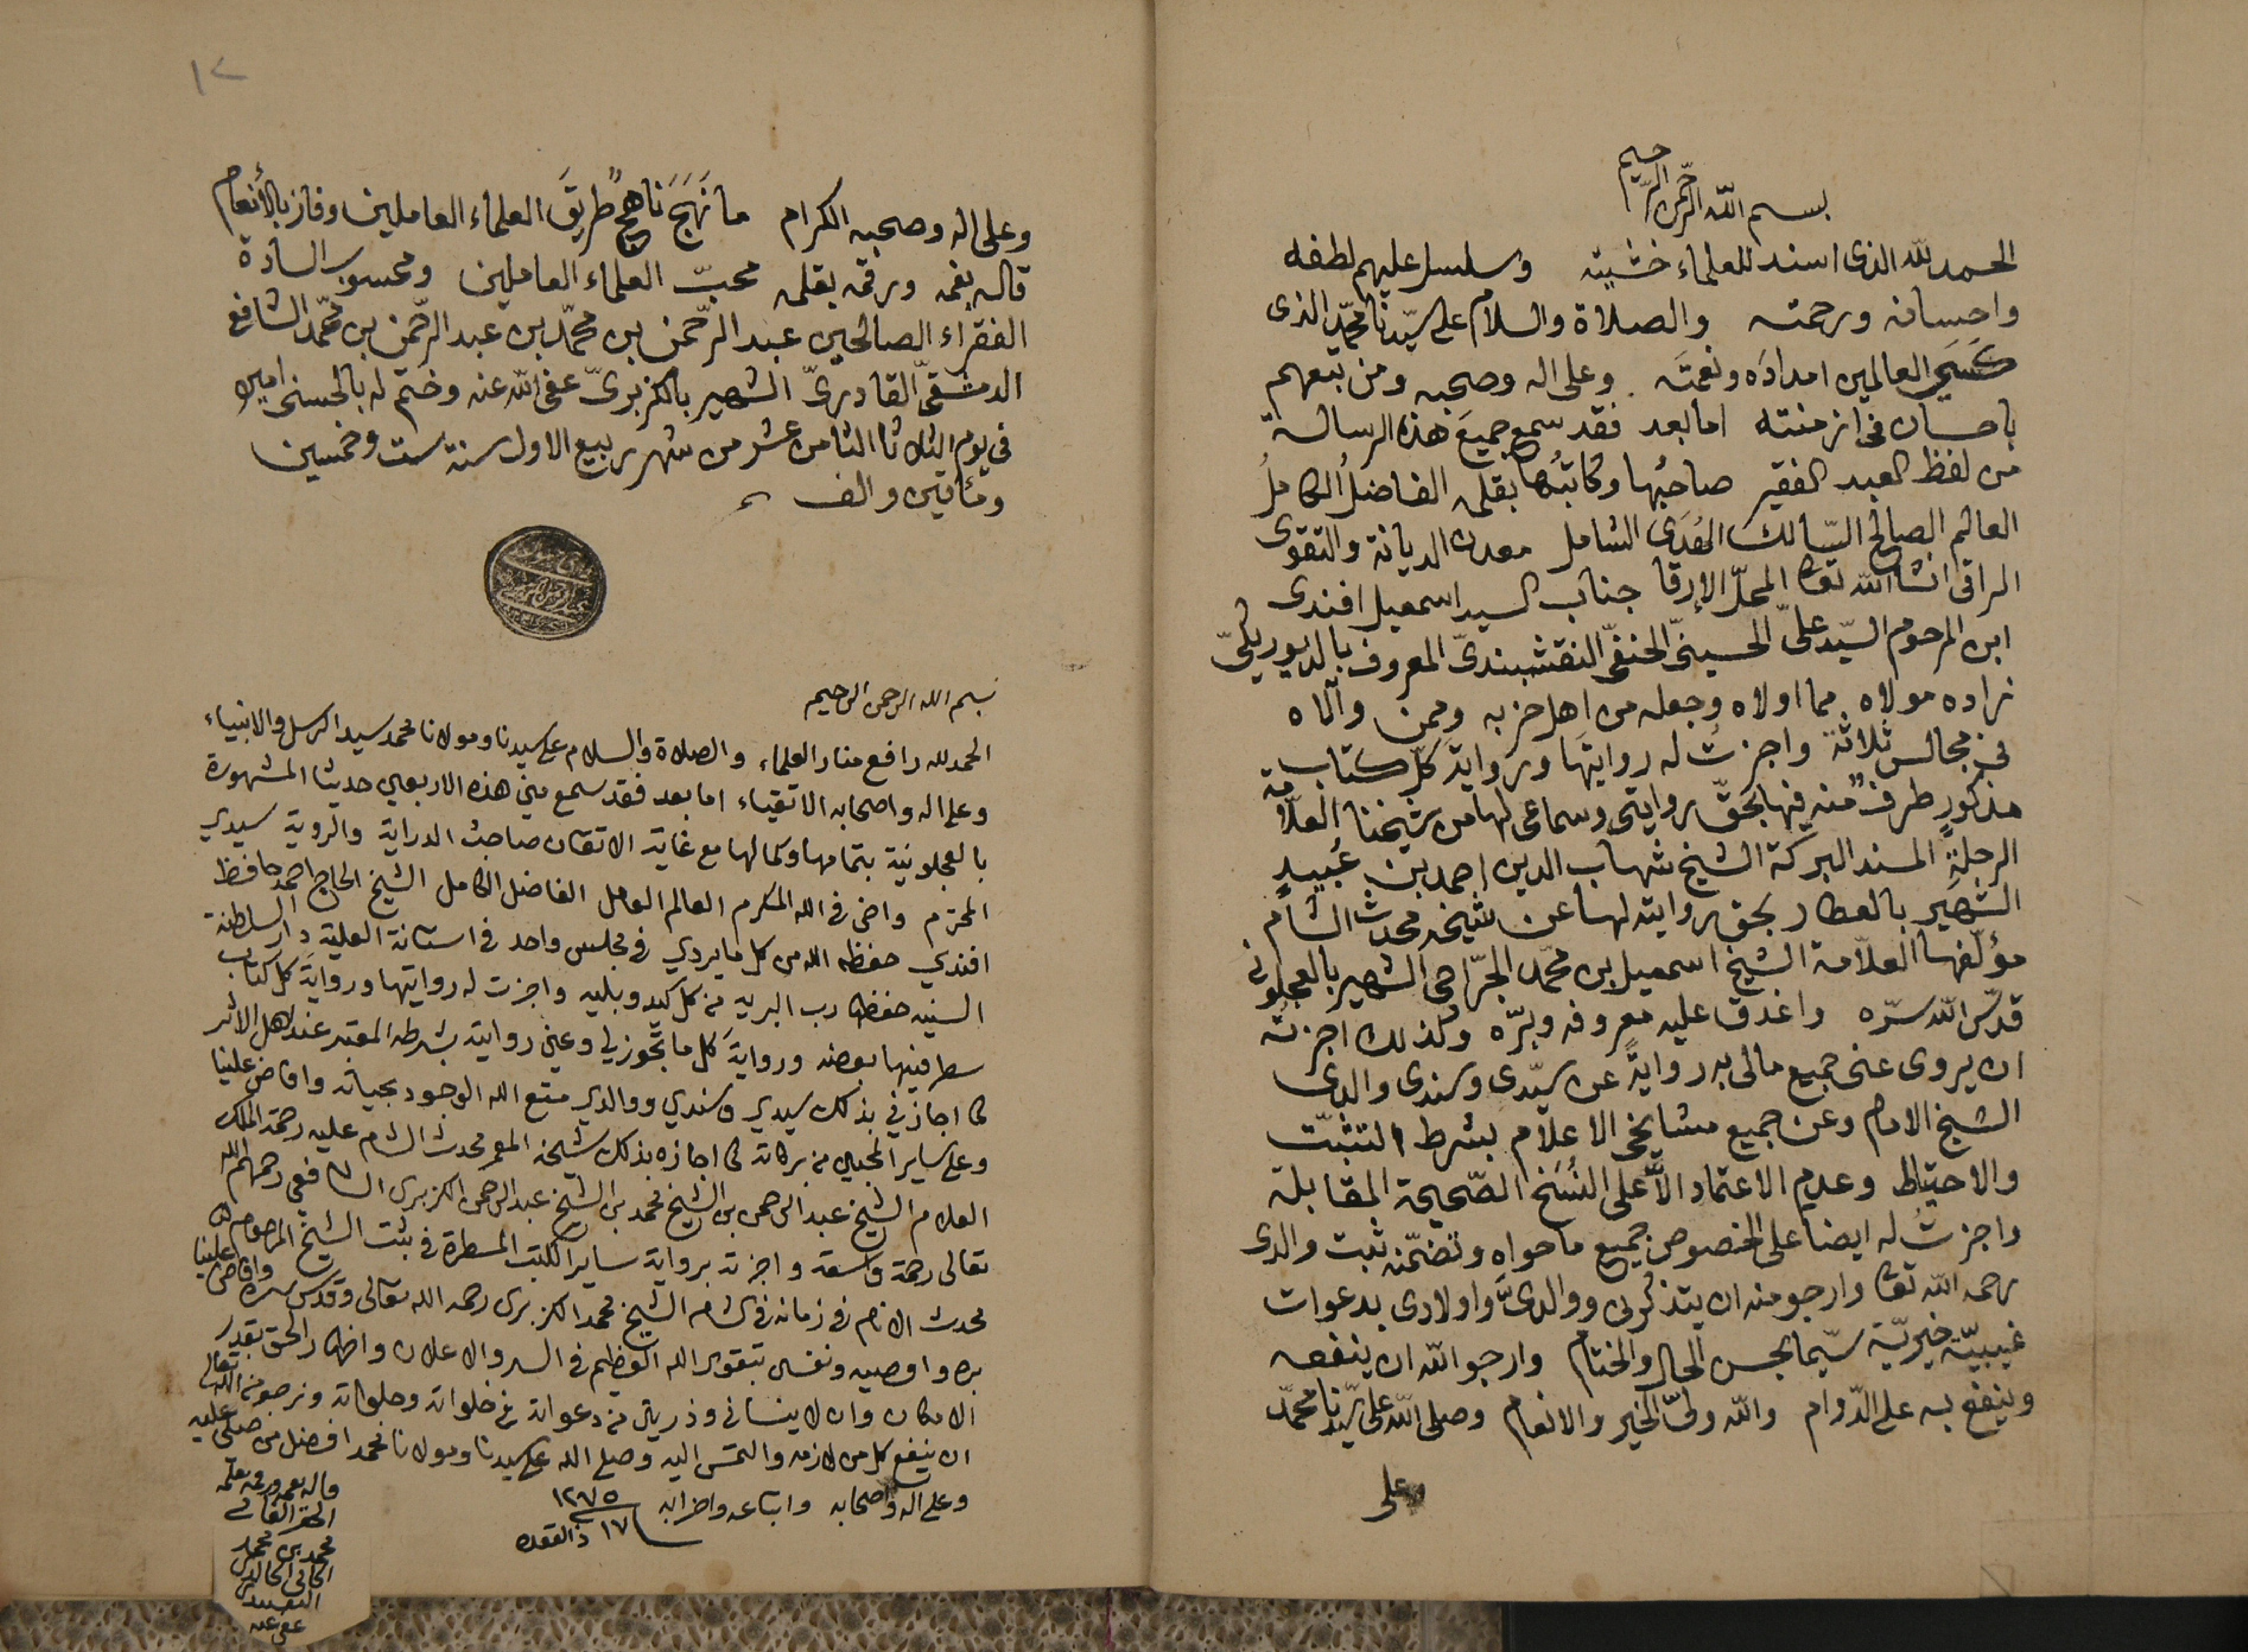 بسم الله الرحمن الرحيم
الحمد لله الذى اسند للعلماء خشيته وسلسل عليهم لطفه
واحسانه ورحمته والصلاة والسلام على سيّدنا محمّد الذى
العالمين امدادَه ونعمتَه وعلى اله وصحبه ومن تبعهم
باحسان فى ازمنته اما بعد فقد سمع جميعَ هذه الرسالة
من لفظ العبد الفقير صاحبُها وكاتبُها بقلمه الفاضلُ الكاملُ
العالم الصالح السّالك الهُدَى الشامل معدن الديانة والتقوى
الراقى انشاالله تعا المحلّ الإرقا جناب السيد اسمعيل افندى
ابن المرحوم السيّد علىّ الحسينىّ الحنفىّ النقشبندىّ المعروف بالديوريكىّ
زاده مولاه مما اولاه وجعله من اهل حزبه وممن والاه
فى مجالس ثلاثة واجزتُ له روايتَها وروايةَ كلّ كتاب
مذكورٍ طرفٌ منه فيها بحقّ روايتى وسماعى لها من شيخنا العلّامة
الرحلةِ المسند البركة الشيخ شهاب الدين احمد بن عُبيدٍ
الشهير بالعطار بحق روايته لها عن شيخه محدث الشام
مؤلّفها العلّامة الشيخ اسمعيل بن محمّد الجرّاحى الشهير بالعجلونى
قدّس الله سرّه واغدق عليه معروفه وبرّه وكذلك اجزتُه
ان يروى عنى جميع مالى به روايةً عن سيّدى وسندى والدى
الشيخ الامام وعن جميع مشايخى الاعلام بشرط التثبّت
والاحتياط وعدم الاعتماد الاّ على النُسَخ الصّحيحة المقابلة
واجزتُ له ايضا على الخصوص جميع ما حواه وتضمّنه ثبت والدى
رحمه الله تعا وارجو منه ان يتذكرنى ووالدىَّ واولادى بدعوات
غيبيّة خيريّة سيّما بحسن الحال والختام وارجو الله ان ينفعه
وينفع به على الدّوام والله ولىّ الخير والانعام وصلى الله على سيّدنا محمّد
على
١٢
وعلى اله وصحبه الكرام ما نَهَجَ ناهجٌ طريقَ العلماء العاملين وفاز بالأنعام
قاله بفمه ورقمه بقلمه محبّ العلماء العاملين ومحسوب السادة
الفقرّاء الصالحين عبد الرّحمن بن محمّد بن عبد الرّحمن بن محمّد الشافعى
الدمشقىّ القادرىّ الشهير بالكزبرىّ عفى الله عنه وختم له بالحسنى امين
فى يوم الثلاثا الثامن عشر من شهر ربيع الاول سنة ست وخمسين
ومئاتين والف
بسم الله الرحمن الرحيم
الحمد لله رافع منار العلماء والصلاة والسلام على سيدنا ومولانا محمد سيد الرسل والانبياء
وعلى اله واصحابه الاتقياء اما بعد فقد سمع منى هذه الاربعين حديثا المشهورة
بالعجلونية بتمامها وكمالها مع غاية الاتقان صاحبُ الدراية والروية سيدي
المحترم واخى فى الله المكرم العالم العامل الفاضل الكامل الشيخ الحاج احمد حافظ
افندي حفظه الله من كل ما يردي فى مجلس واحد فى استانة العلية دار السلطنة
السنيه حفظها رب البريه من كل كيد وبليه واجزت له روايتها وروايةَ كل كتاب
سطر فيها بعضه وروايةَ كل ما تجوز لي وعنى روايته بشرطه المعتبر عند اهل الاثر
كما اجازني بذلك سيدي وسندي ووالدي متع الله الوجود بحياته وافاض علينا
وعلى ساير المحبين من بركاته كما اجازه بذلك شيخه المعمر محدث الشام عليه رحمة الملك
العلام الشيخ عبد الرحمن بن الشيخ محمد بن الشيخ عبد الرحمن الكزبرى الشافعي رحمهم الله
تعالى رحمة واسعة واجزته برواية ساير الكتب المسطرة في ثبت الشيخ المرحوم
محدث الانام فى زمانه فى الشام الشيخ محمد الكزبرى رحمه الله تعالى وقدس سره وافاض علينا
بره واوصيه ونفسى بتقوى الله العظيم فى السر والاعلان واظهار الحق بقدر
الامكان وان لا ينسانى وذريتى من دعواته فى خلواته وجلواته ونرجو من الله تعالى
ان ينفع كل من لازمه والتمس اليه وصلى الله على سيدنا ومولانا محمد افضل من صلى عليه
وعلى اله واصحابه واتباعه واحزابه ١٢٧٥
١٧ ذالقعده
قاله بفمه ورقمه بقلمه
محمد بن محمد
الخانى الخالدى
النقشبندى
عفى عنه